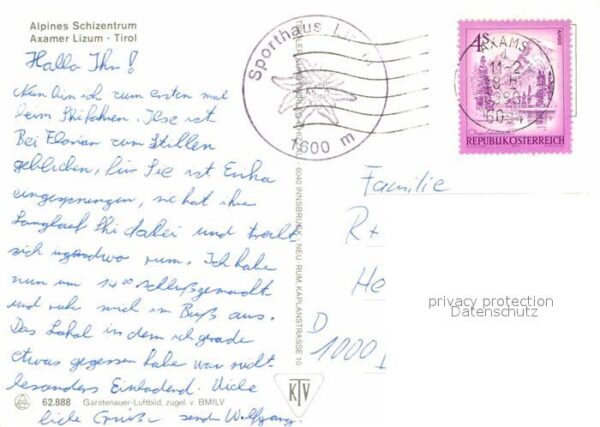 Alpines Schizentrum
Axamer Lizum - Tirol
Hallo Ihr!
Nun bin ich zum ersten mal
beim Skifahren. Ilse ist
Bei Florian zum Stillen
geblieben, für Sie ist Erika
eingesprungen, sie hat ihre
Langlauf Ski dabei und treibt
sich irgendwo rum. Ich habe
nun um 14°° Schluß gemacht
und ruhe mich im Bus aus.
Das Lokal in dem ich gerade
etwas gegessen habe war nicht
besonders Einladend. Viele
liebe Grüße senden Wolfgang.
62.888 Garstenauer-Luftbild, zugel. v. BMfLV
6040 INNSBRUCK - NEU-RUM, KAPLANSTRASSE 10
KTV
Sporthaus
1600 m
4S
AXAMS
11-2
REPUBLIK ÖSTERREICH
Familie
R+
He
D
1000
privacy protection
Datenschutz